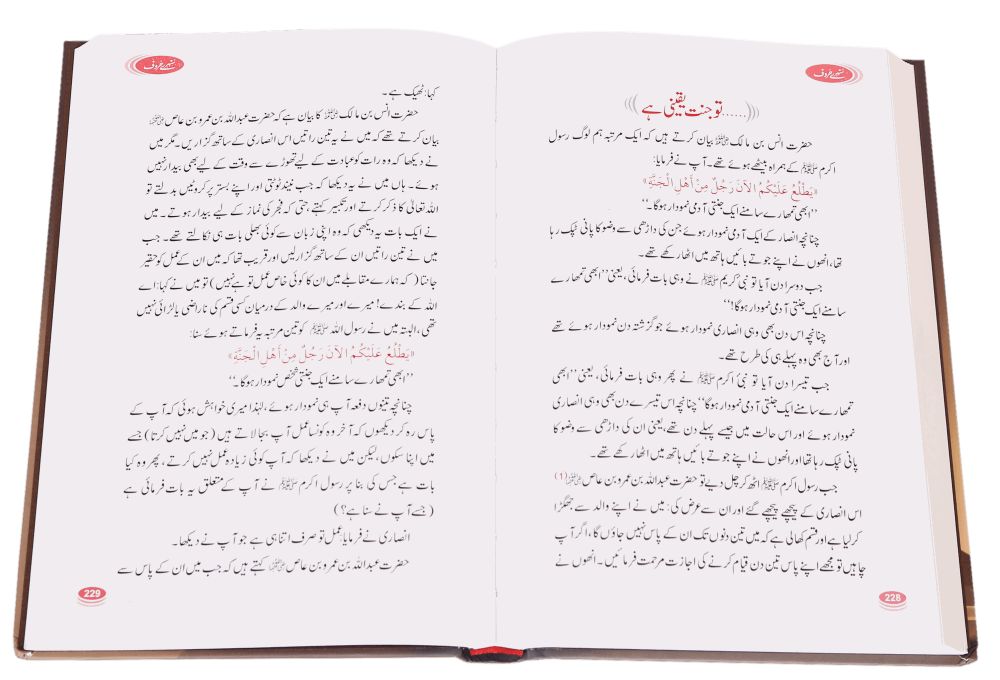 سنہرے حروف
......تو جنت یقینی ہے
حضرت انس بن مالک رضی اللہ عنہ بیان کرتے ہیں کہ ایک مرتبہ ہم لوگ رسول
اکرم ﷺ کے ہمراہ بیٹھے ہوئے تھے۔ آپ نے فرمایا:
«يَطْلُعُ عَلَيْكُمُ الآنَ رَجُلٌ مِنْ أَهْلِ الْجَنَّةِ»
’’ابھی تمھارے سامنے ایک جنتی آدمی نمودار ہوگا۔‘‘
چنانچہ انصار کے ایک آدمی نمودار ہوئے جن کی داڑھی سے وضو کا پانی ٹپک رہا
تھا، انھوں نے اپنے جوتے بائیں ہاتھ میں اٹھا رکھے تھے۔
جب دوسرا دن آیا تو نبیٔ کریم ﷺ نے وہی بات فرمائی، یعنی ’’ابھی تمھارے
سامنے ایک جنتی آدمی نمودار ہوگا!‘‘
چنانچہ اس دن بھی وہی انصاری نمودار ہوئے جو گزشتہ دن نمودار ہوئے تھے
اور آج بھی وہ پہلے ہی کی طرح تھے۔
جب تیسرا دن آیا تو نبیٔ اکرم ﷺ نے پھر وہی بات فرمائی، یعنی ’’ابھی
تمھارے سامنے ایک جنتی آدمی نمودار ہوگا‘‘ چنانچہ اس تیسرے دن بھی وہی انصاری
نمودار ہوئے اور اس حالت میں جیسے پہلے دن تھے، یعنی ان کی داڑھی سے وضو کا
پانی ٹپک رہا تھا اور انھوں نے اپنے جوتے بائیں ہاتھ میں اٹھا رکھے تھے۔
جب رسول اکرم ﷺ اٹھ کر چل دیے تو حضرت عبداللہ بن عمرو بن عاص رضی اللہ عنہ (۱)
اس انصاری کے پیچھے پیچھے گئے اور ان سے عرض کی: میں نے اپنے والد سے جھگڑا
کر لیا ہے اور قسم کھالی ہے کہ میں تین دنوں تک ان کے پاس نہیں جاؤں گا، اگر آپ
چاہیں تو مجھے اپنے پاس تین دن قیام کرنے کی اجازت مرحمت فرمائیں۔ انھوں نے
228
سنہرے حروف
کہا: ٹھیک ہے۔
حضرت انس بن مالک رضی اللہ عنہ کا بیان ہے کہ حضرت عبداللہ بن عمرو بن عاص رضی اللہ عنہ
بیان کرتے تھے کہ میں نے یہ تین راتیں اس انصاری کے ساتھ گزاریں۔ مگر میں
نے دیکھا کہ وہ رات کو عبادت کے لیے تھوڑے سے وقت کے لیے بھی بیدار نہیں
ہوئے۔ ہاں میں نے یہ دیکھا کہ جب نیند ٹوٹتی اور اپنے بستر پر کروٹیں بدلتے تو
اللہ تعالیٰ کا ذکر کرتے اور تکبیر کہتے حتیٰ کہ فجر کی نماز کے لیے بیدار ہوتے۔ میں
نے ایک بات یہ دیکھی کہ وہ اپنی زبان سے کوئی بھلی بات ہی نکالتے تھے۔ جب
میں نے تین راتیں ان کے ساتھ گزار لیں اور قریب تھا کہ میں ان کے عمل کو حقیر
جانتا (کہ ہمارے مقابلے میں ان کا کوئی خاص عمل تو ہے نہیں) تو میں نے کہا: اے
اللہ کے بندے! میرے اور میرے والد کے درمیان کسی قسم کی ناراضی یا لڑائی نہیں
تھی، البتہ میں نے رسول اللہ ﷺ کو تین مرتبہ یہ فرماتے ہوئے سنا:
«يَطْلُعُ عَلَيْكُمُ الآنَ رَجُلٌ مِنْ أَهْلِ الْجَنَّةِ»
’’ابھی تمھارے سامنے ایک جنتی شخص نمودار ہوگا۔‘‘
چنانچہ تینوں دفعہ آپ ہی نمودار ہوئے، لہٰذا میری خواہش ہوئی کہ آپ کے
پاس رہ کر دیکھوں کہ آخر وہ کونسا عمل آپ بجا لاتے ہیں (جو میں نہیں کرتا) جسے
میں اپنا سکوں، لیکن میں نے دیکھا کہ آپ کوئی زیادہ عمل نہیں کرتے، پھر وہ کیا
بات ہے جس کی بنا پر رسول اکرم ﷺ نے آپ کے متعلق یہ بات فرمائی ہے
(جسے آپ نے سنا ہے؟)
انصاری نے فرمایا: عمل تو صرف اتنا ہی ہے جو آپ نے دیکھا۔
حضرت عبداللہ بن عمرو بن عاص رضی اللہ عنہ کہتے ہیں کہ جب میں ان کے پاس سے
229